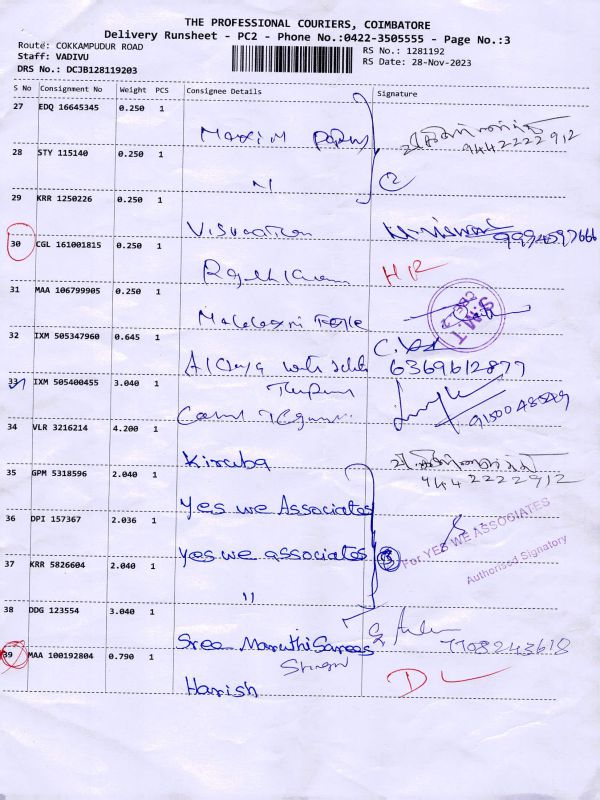 THE PROFESSIONAL COURIERS, COIMBATORE
Delivery Runsheet - PC2 - Phone No.:0422-3505555 - Page No.:3
Route: COKKAMPUDUR ROAD
RS No.: 1281192
Staff: VADIVU
RS Date: 28-Nov-2023
DRS No.: DCJB128119203
S No Consignment No Weight PCS Consignee Details Signature
27 EDQ 16645345 0.250 1
9442222912
28 STY 115140 0.250 1
2
29 KRR 1250226 0.250 1
9994597666
30 CGL 161001815 0.250 1
31 MAA 106799905 0.250 1
32 IXM 505347960 0.645 1
6369612877
33 IXM 505400455 3.040 1
9150048549
34 VLR 3216214 4.200 1
Kiruba
9442222912
35 GPM 5318596 2.040 1
Yes we Associates
36 DPI 157367 2.036 1
Yes we associates
3
For YES WE ASSOCIATES
Authorised Signatory
37 KRR 5826604 2.040 1
"
38 DDG 123554 3.040 1
Sree Maruthi Sarees
7708243618
39 MAA 100192804 0.790 1
Harish
DL